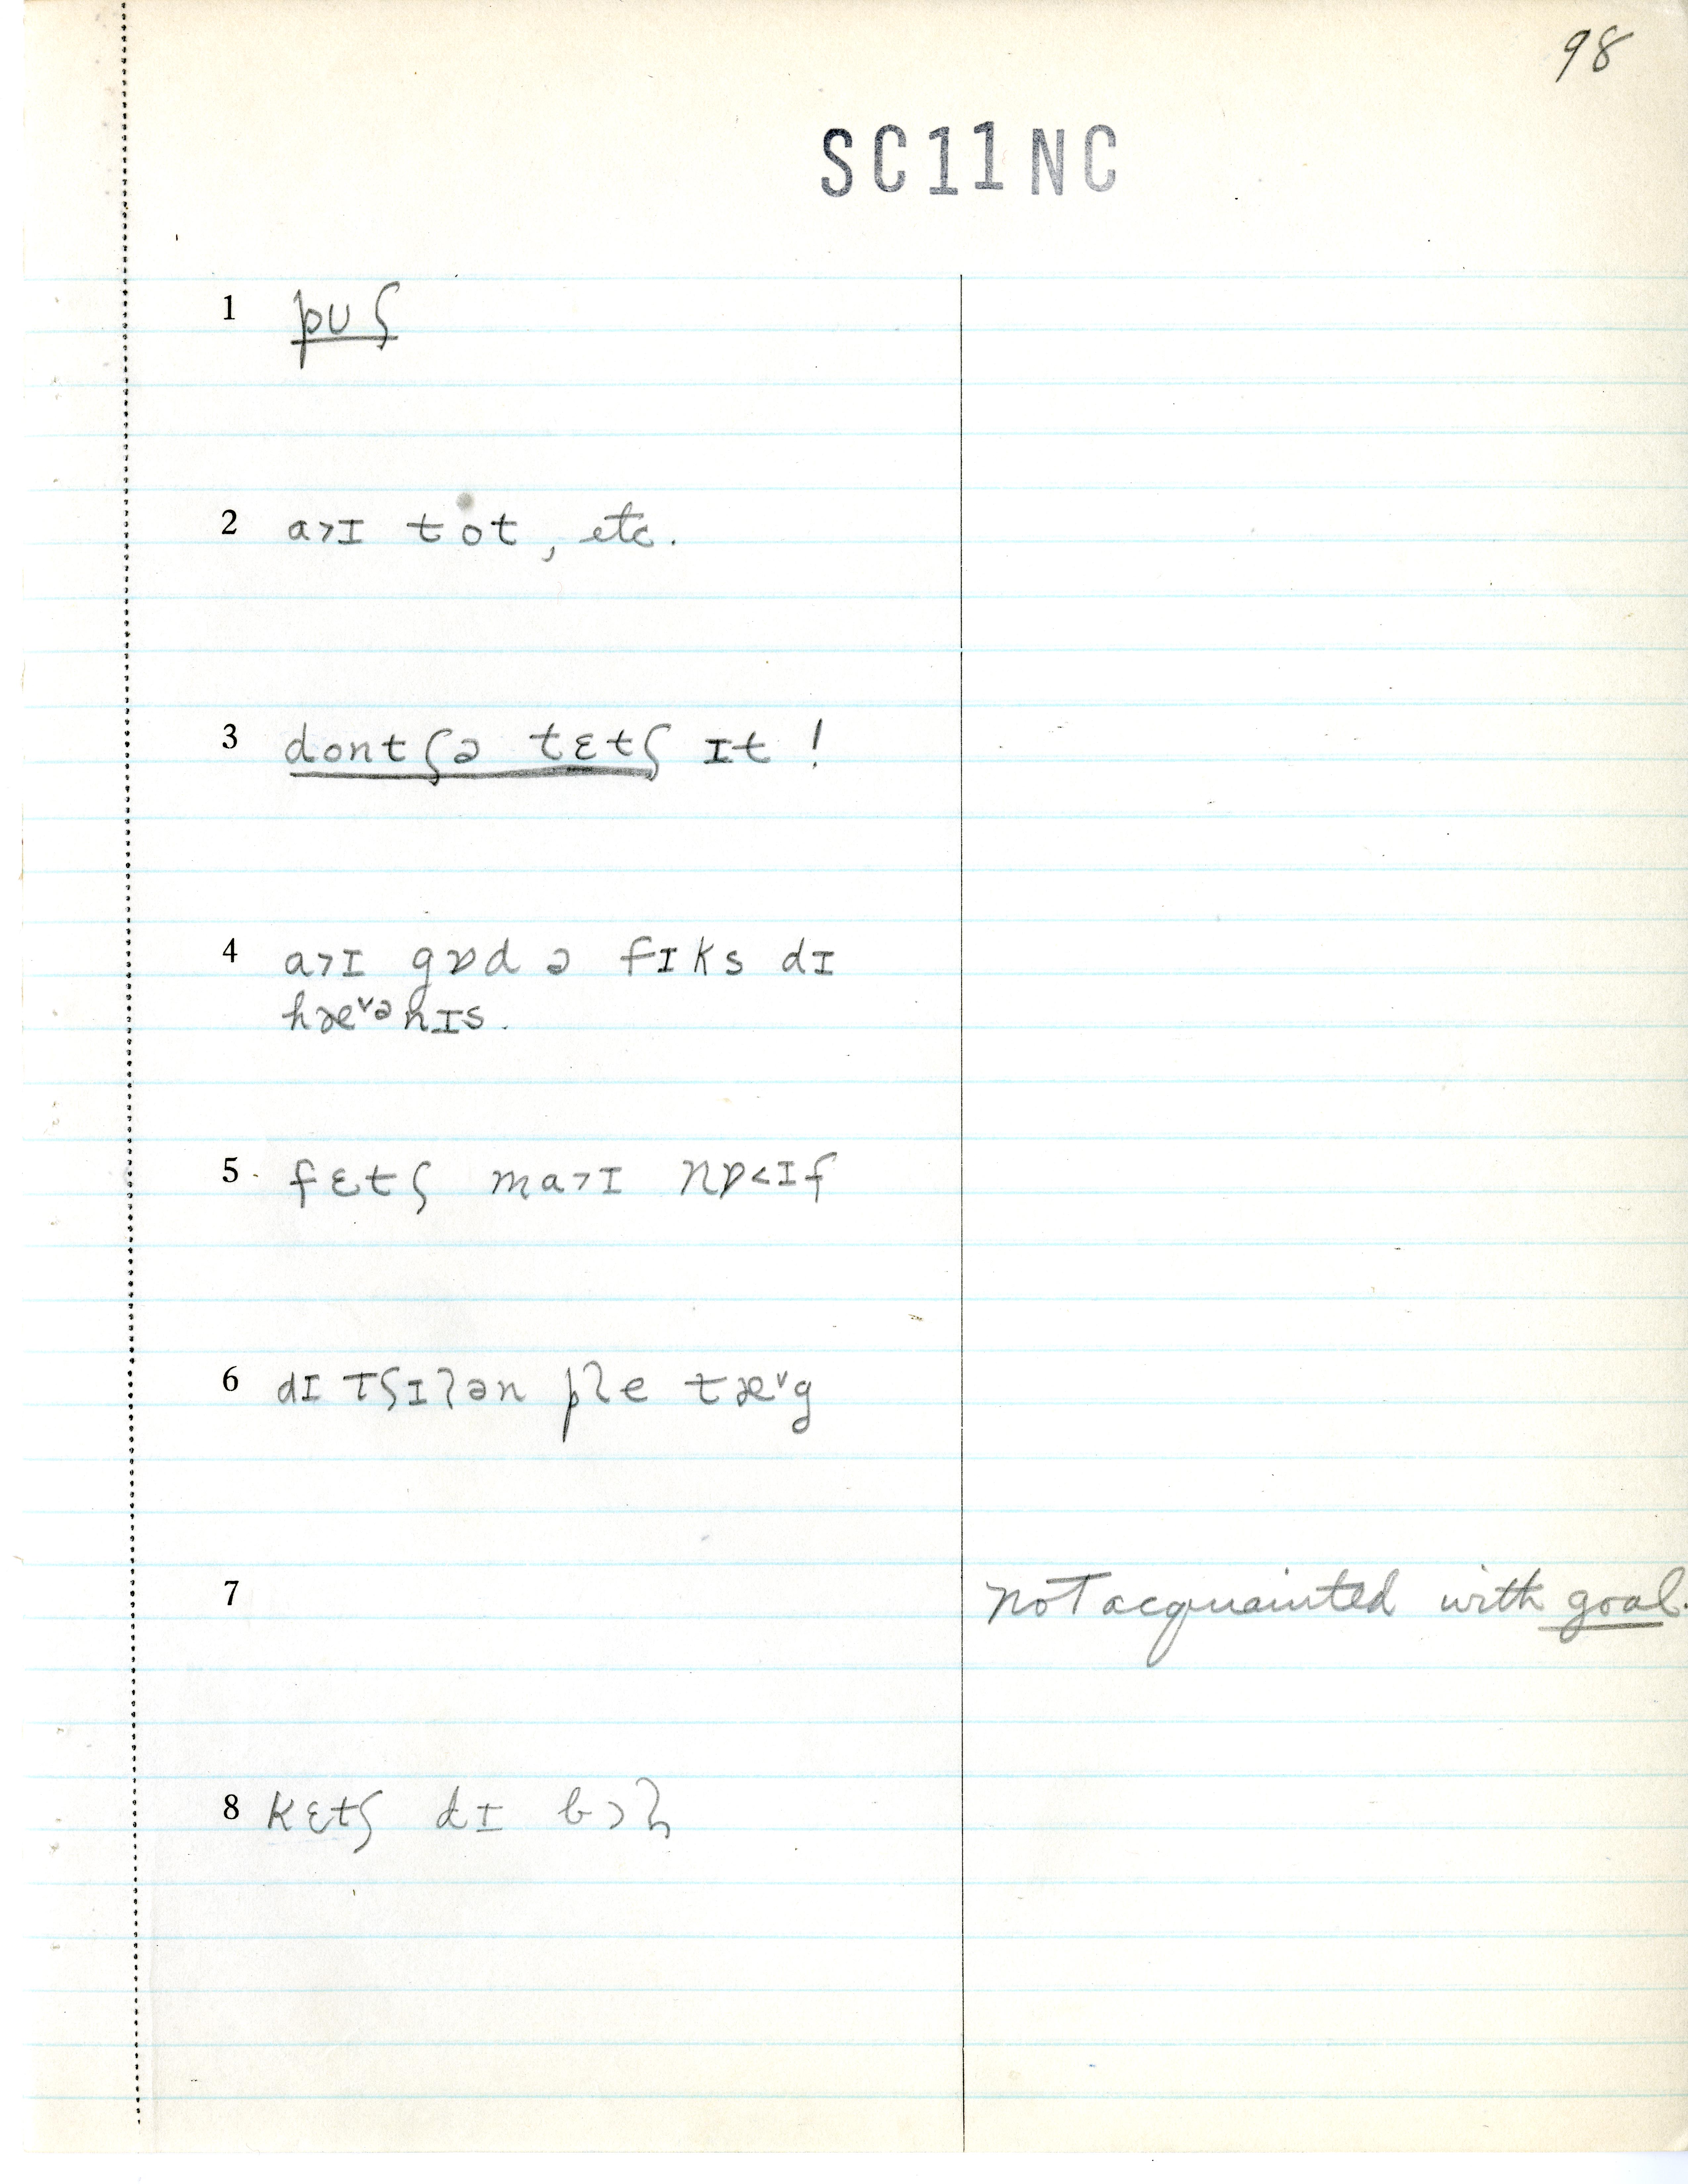 98
SC11NC
1 puʃ
2 a>ɪ tot, etc.
3 dontʃə tɛtʃ ɪt !
4 a>ɪ gɒd ə fɪks dɪ
hæᵛᵊnɪs.
5 fɛtʃ ma>ɪ nɒ<ɪf
6 dɪ tʃɪlən ple tæᵛg
7 not acquainted with goal.
8 kɛtʃ dɪ bɔl